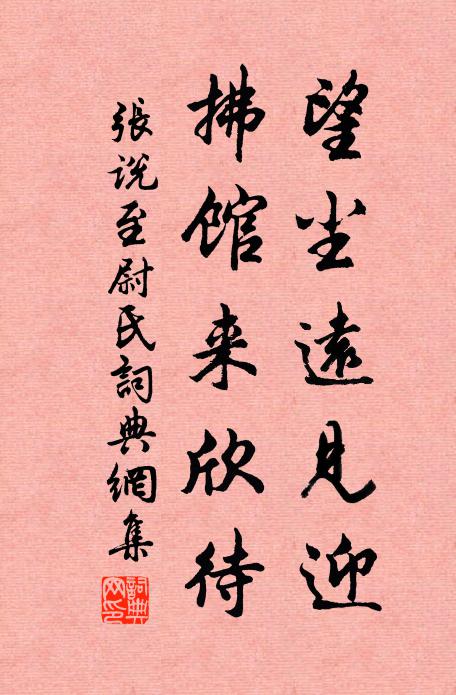 望尘遠見迎
拂馆来欣待
張说至尉氏詞典網集
詞典網印